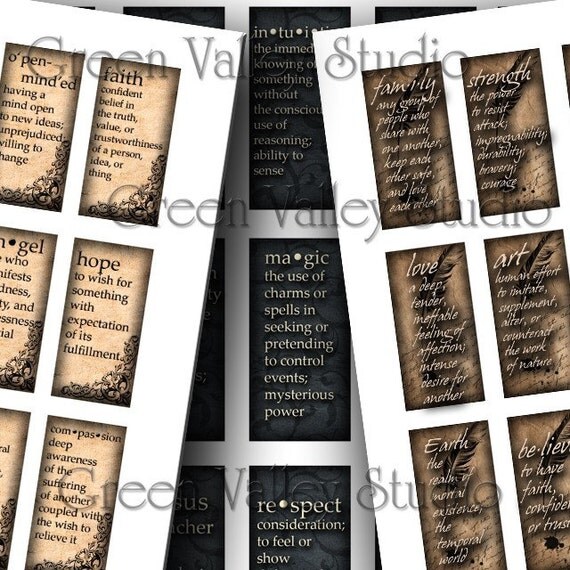 Green Valley Studio
o•pen-
mind•ed
having a
mind open
to new ideas;
unprejudiced;
willing to
change
faith
confident
belief in
the truth,
value, or
trustworthiness
of a person,
idea, or
thing
in•tu•iti
the immedi
knowing of
something
without
the conscious
use of
reasoning;
ability to
sense
family
any group of
people who
share with
one another,
keep each
other safe,
and love
each other
strength
the power
to resist
attack;
impregnability;
durability;
bravery;
courage
Green Valley Studio
n•gel
who
nifests
dness,
ty, and
lessness;
cial
hope
to wish for
something
with
expectation
of its
fulfillment.
ma•gic
the use of
charms or
spells in
seeking or
pretending
to control
events;
mysterious
power
love
a deep,
tender,
ineffable
feeling of
affection;
intense
desire for
another
art
human effort
to imitate,
supplement,
alter, or
counteract
the work
of nature
com•pas•sion
deep
awareness
of the
suffering
of another
coupled with
the wish to
relieve it
sus
acher
re•spect
consideration;
to feel or
show
Earth
the
realm of
mortal
existence;
the
temporal
world
be•lieve
to have
faith,
confidence
or trust
Green Valley Studio